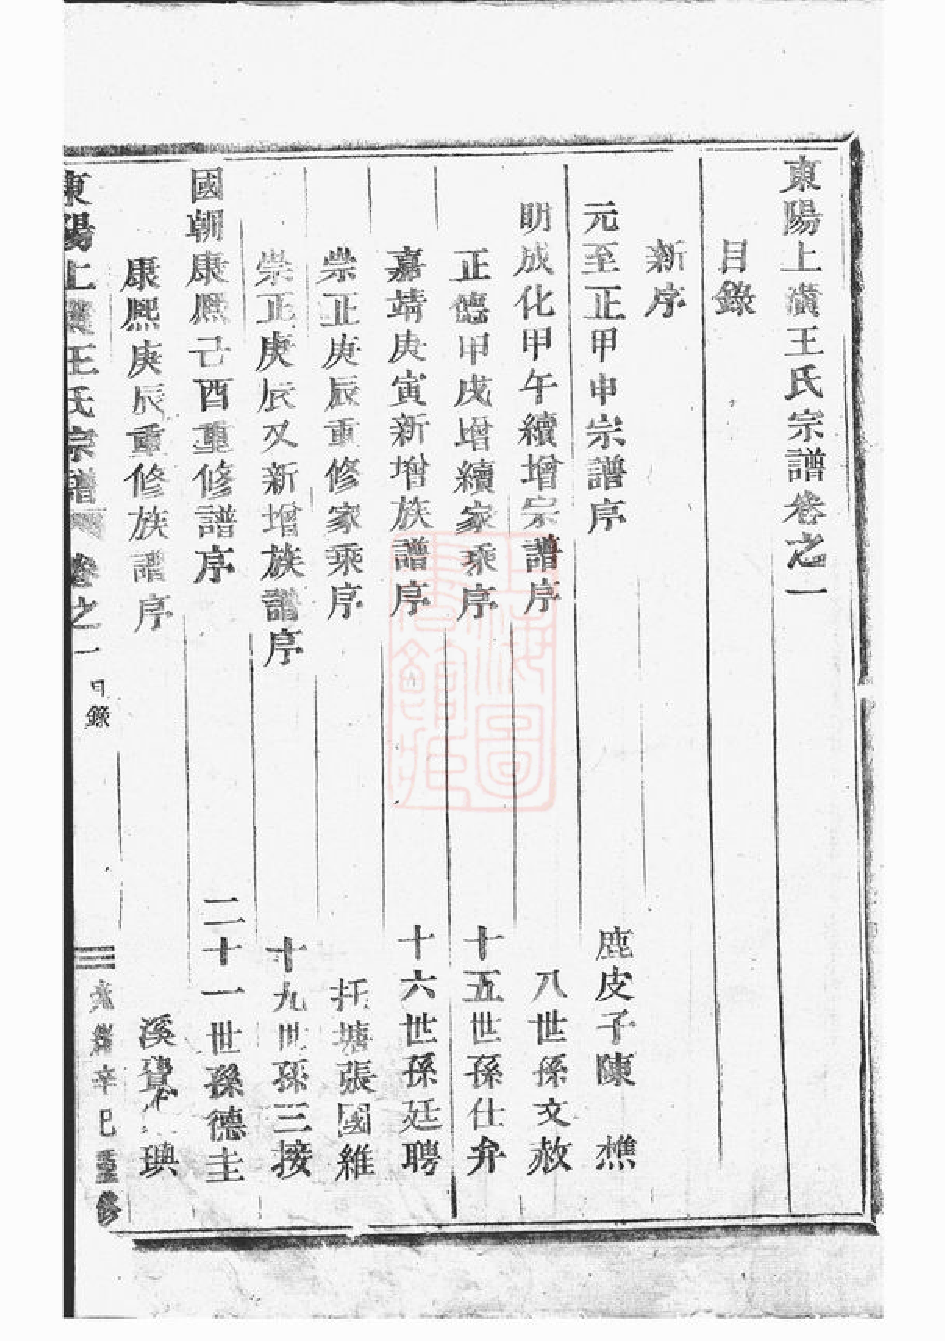 東陽上璜王氏宗譜卷之一
目錄
新序
元至正甲申宗譜序 鹿皮子陳樵
明成化甲午續增宗譜序 八世孫文赦
正德甲戌增續家乘序 十五世孫仕弁
嘉靖庚寅新增族譜序 十六世孫廷聘
崇正庚辰重修家乘序 托塘張國維
崇正庚辰又新增族譜序 十九世孫三接
國朝康熙己酉重修譜序 二十一世孫德圭
康熙庚辰重修族譜序 溪
東陽上璜王氏宗譜 卷之一 目錄 光緒辛巳重修